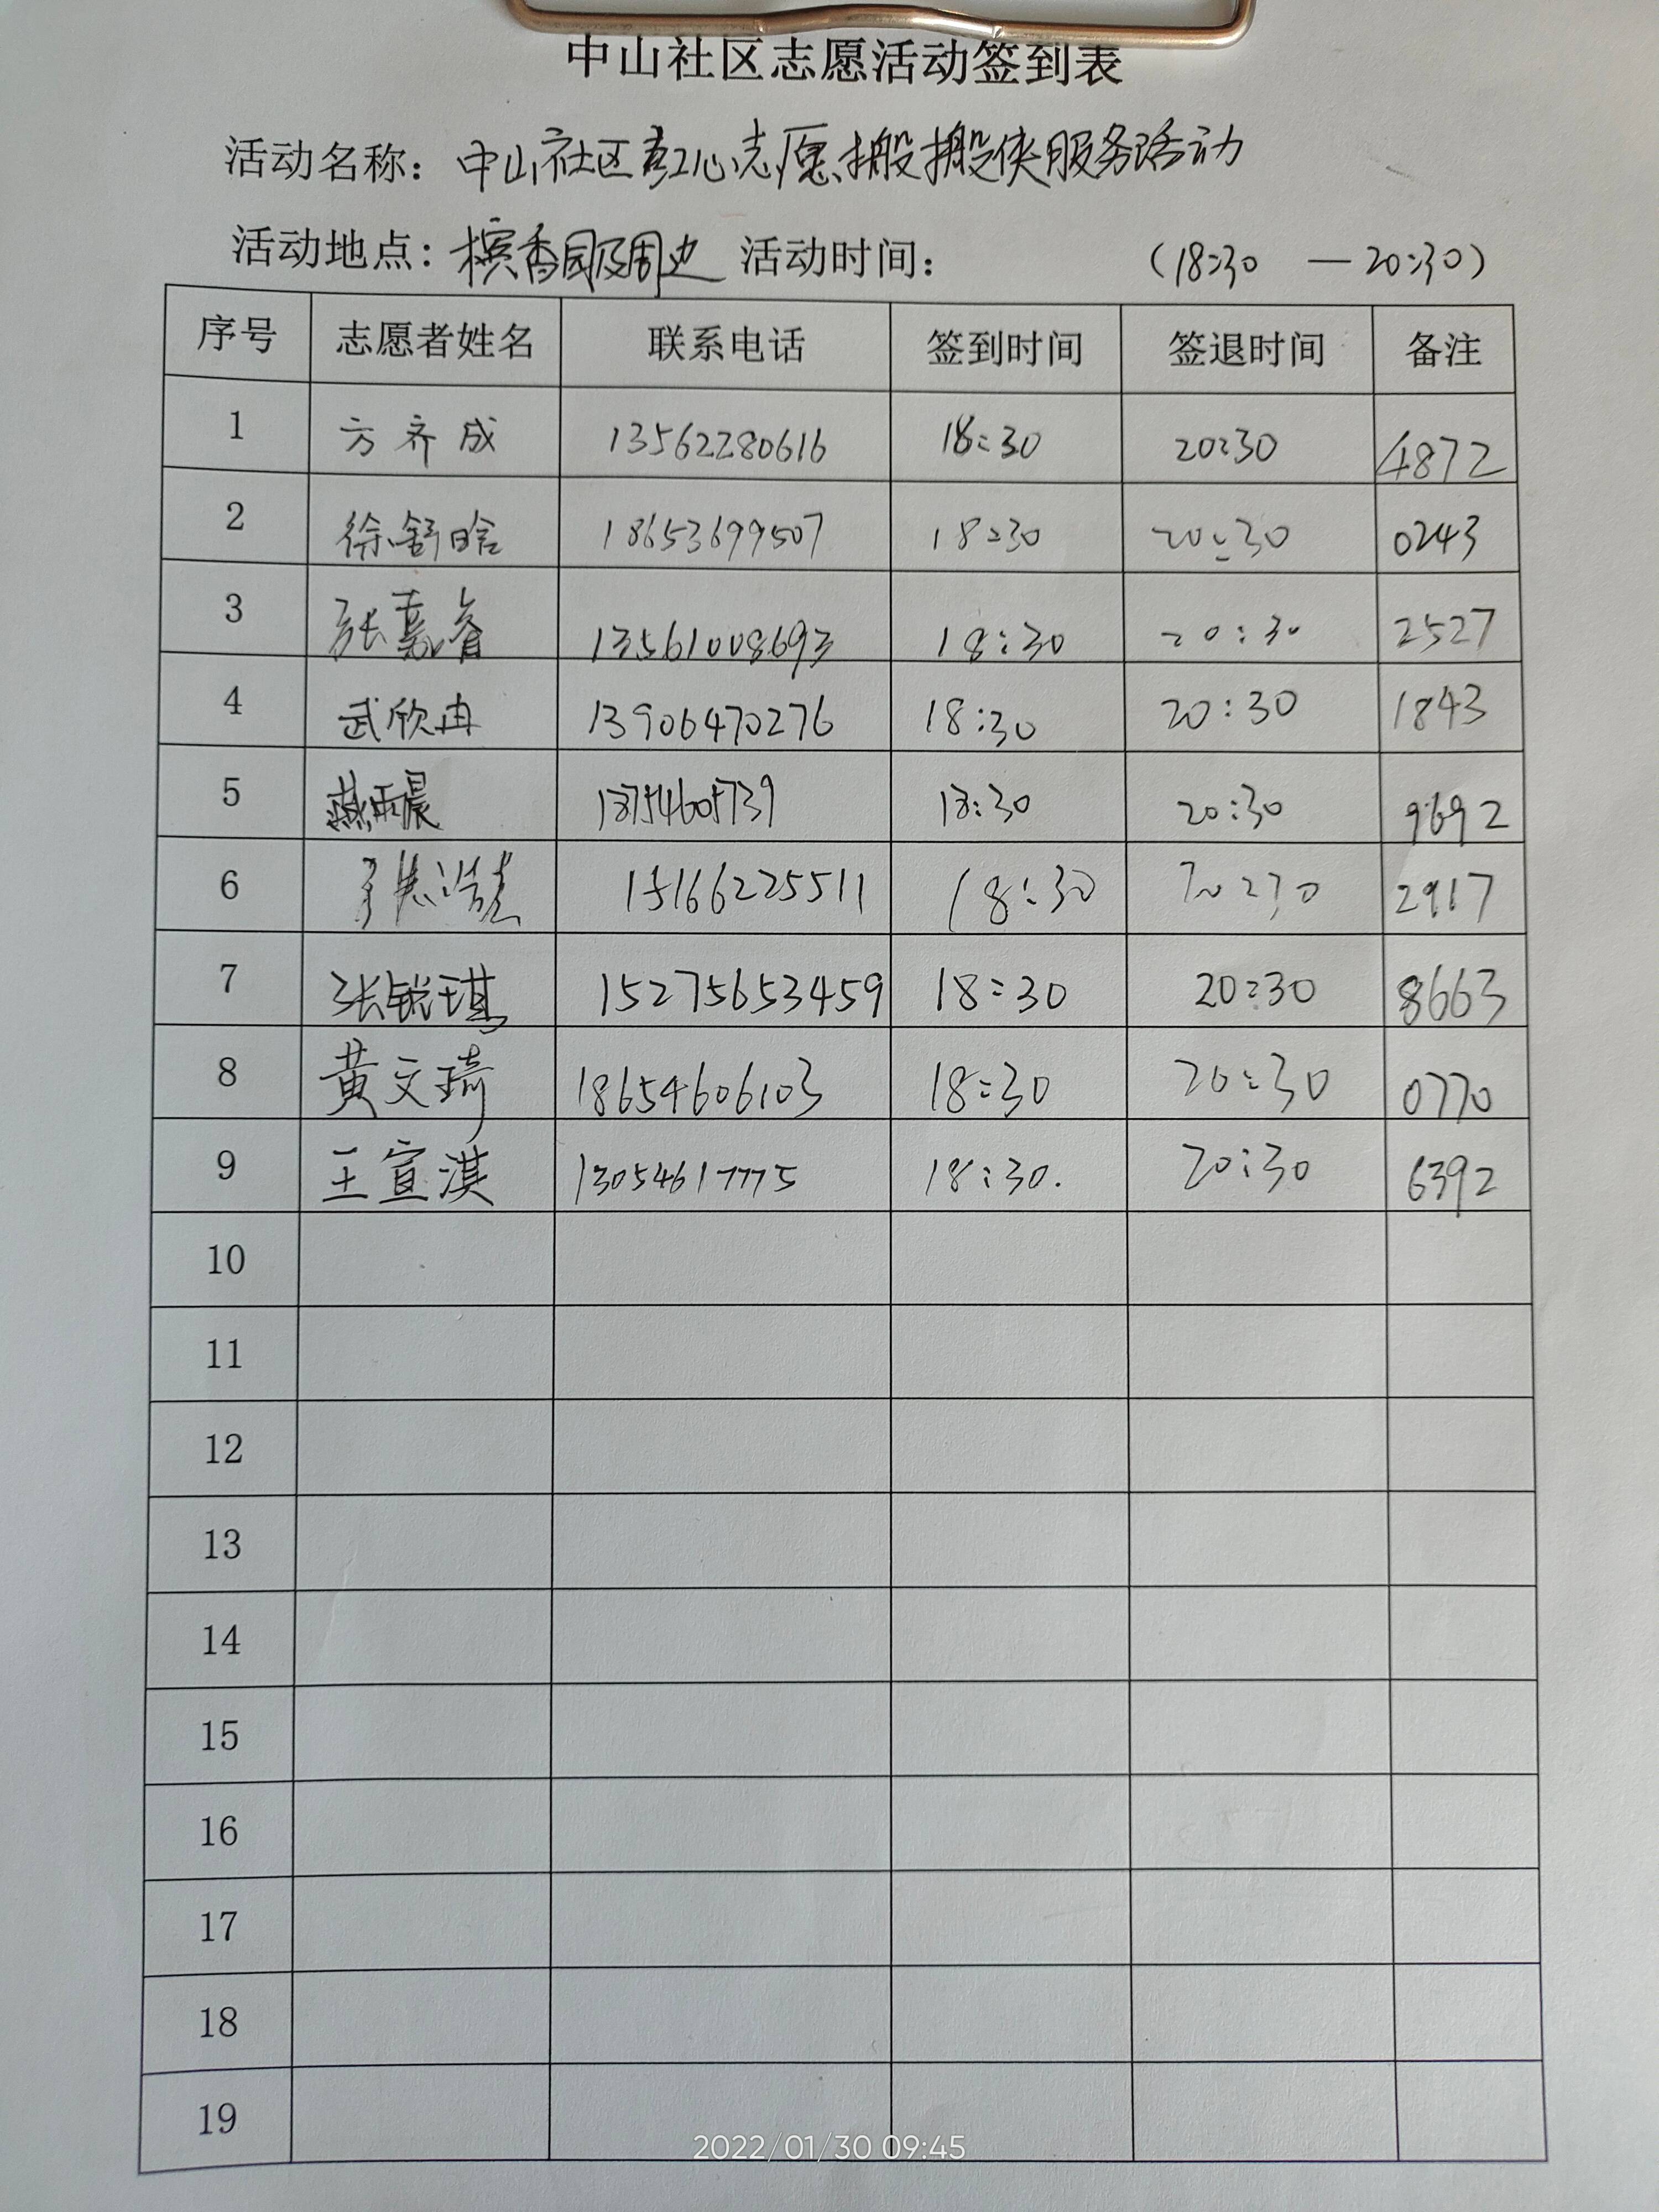 中山社区志愿活动签到表
活动名称：中山社区红心志愿搬搬侠服务活动
活动地点：槟香园及周边 活动时间： （18:30 — 20:30）
序号 志愿者姓名 联系电话 签到时间 签退时间 备注
1 方齐成 13562280616 18:30 20:30 4872
2 徐舒晗 18653699507 18:30 20:30 0243
3 张嘉睿 13561008693 18:30 20:30 2527
4 武欣冉 13906470276 18:30 20:30 1843
5 燕雨晨 18754605739 18:30 20:30 9692
6 15166225511 18:30 20:30 2917
7 张锐琪 15275653459 18:30 20:30 8663
8 黄文琦 18654606103 18:30 20:30 0770
9 王宣淇 13054617775 18:30. 20:30 6392
10
11
12
13
14
15
16
17
18
19
2022/01/30 09:45